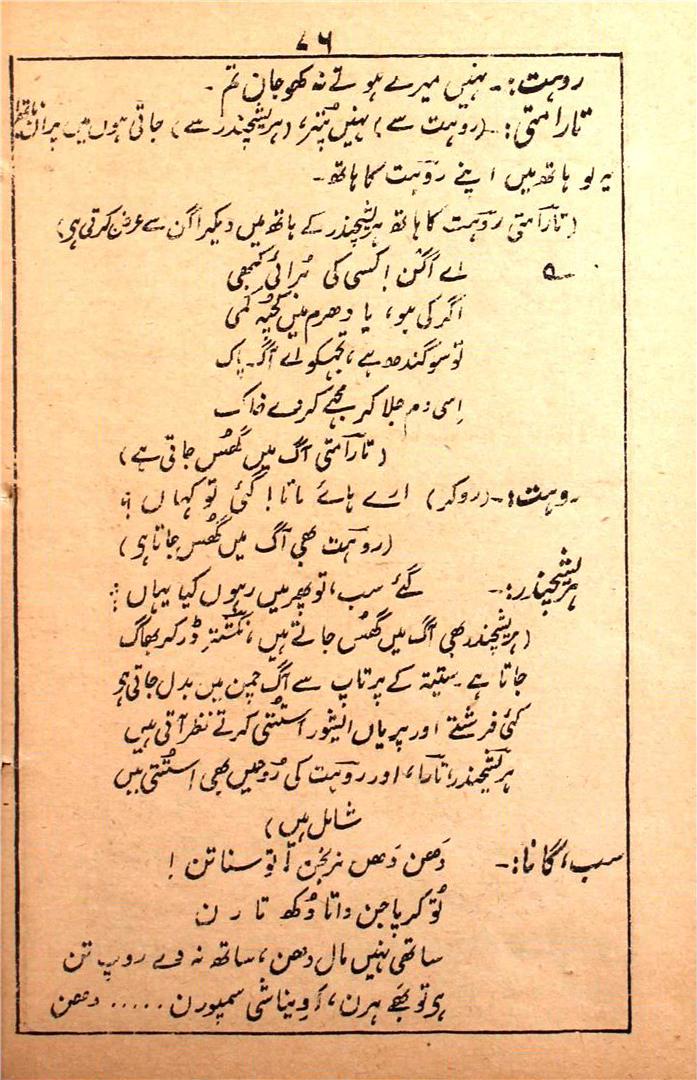 ۷۶
روہت:۔ نہیں میرے ہوتے نہ کھو جان تم۔
تارامتی:۔ (روہت سے) نہیں پُتر، (ہریشچندر سے) جاتی ہوں میں پران ناتھ
یہ لو ہاتھ میں اپنے روہت کا ہاتھ۔
(تارامتی روہت کا ہاتھ ہریشچندر کے ہاتھ میں دیکر اگن سے عرض کرتی ہے)
اے اگن! کسی کی بُرائی کبھی
اگر کی ہو، یا دھرم میں کچھ کمی
تو سوگندھ ہے، تجہکو اے آگ پاک
اِسی دم جلا کر مجھے کردے خاک
(تارامتی آگ میں گُھس جاتی ہے)
روہت:۔ (روکر) ارے ہائے ماتا! گئی تو کہاں؟
(روہت بھی آگ میں گُھس جاتا ہے)
ہریشچندر:۔ گئے سب، تو پھر میں رہوں کیا یہاں؟
(ہریشچندر بھی آگ میں گھُس جاتے ہیں، نکشتر ڈر کر بھاگ
جاتا ہے۔ ستیہ کے پرتاپ سے آگ چمن میں بدل جاتی ہے
کئی فرشتے اور پریاں ایشور استُتی کرتے نظر آتی ہیں
ہریشچندر، تارا، اور روہت کی رُوحیں بھی استُتی میں
شامل ہیں)
سب، گانا:۔ دَھن دَھن نرنجن تو سناتن!
تُو کرپا جن داتا دُکھ تارن
ساتھی نہیں مال دھن، ساتھ نہ دے روپ تن
ہو تو بَھے ہرن، اَوِیناشی سمپورن ..... دھن